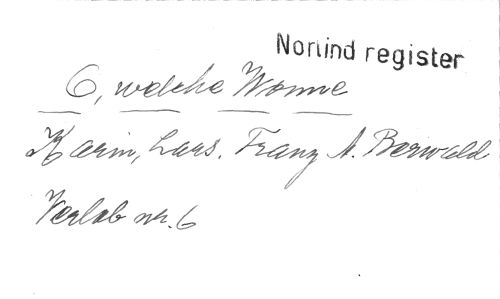 Norlind register
O, welche Wonne
Karin, Lars. Franz A. Berwald
Verlob nr. 6